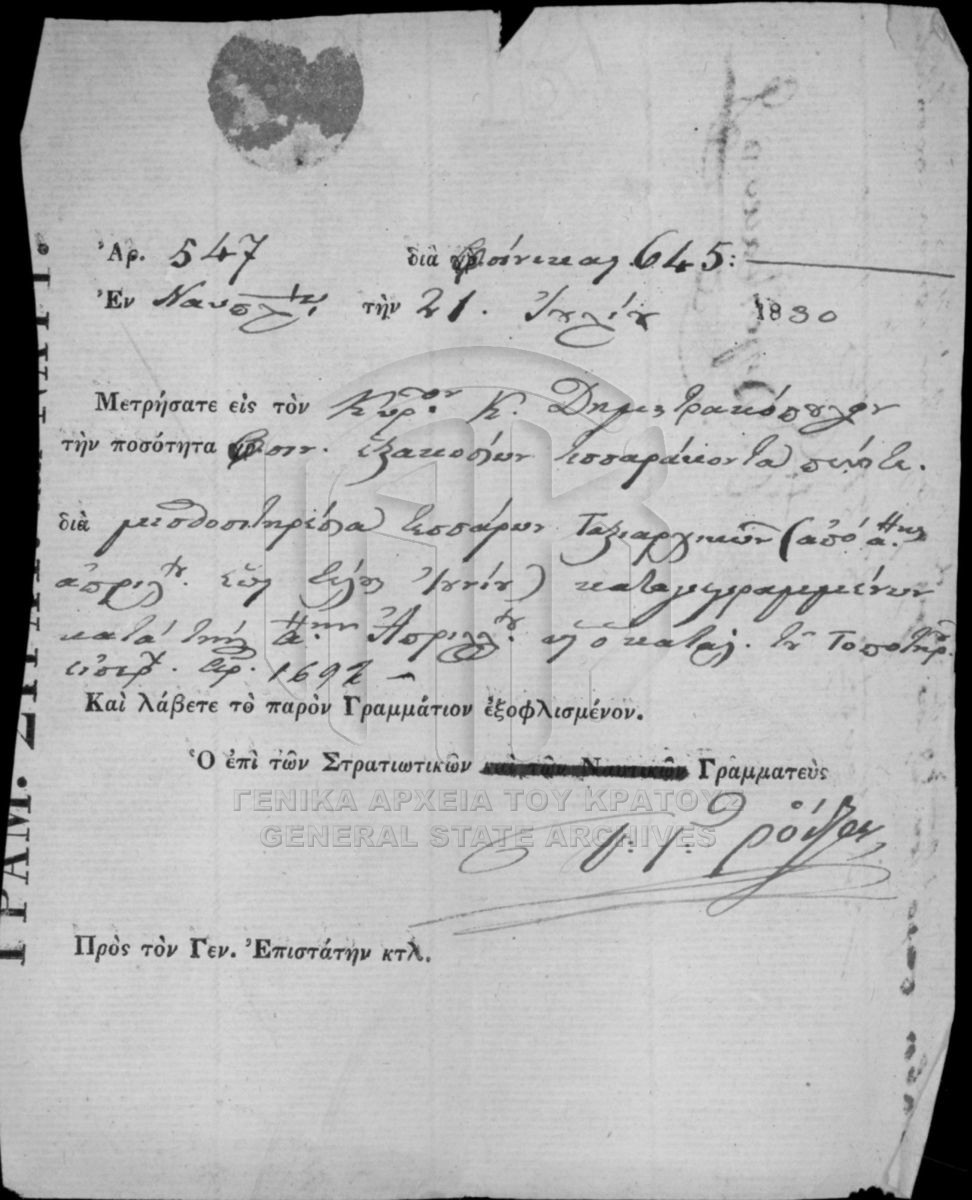 Ἀρ. 547 διὰ φοίνικας 645:
Ἐν Ναυπλίῳ, τὴν 21. Ἰουλίου 1830
Μετρήσατε εἰς τὸν Κύριον Κ. Δημητρακόπουλον
τὴν ποσότητα φοιν. ἑξακοσίων τεσσαράκοντα πέντε.
διὰ μισθοσιτηρέσια τεσσάρων Ταξιαρχικῶν (ἀπὸ α.ης
ἀπριλίου. ἕως τέλος Ἰουνίου) καταγεγραμμένων
κατὰ τὴν Ἀπριλλίου
ἀρ. 1692
Καὶ λάβετε τὸ παρὸν Γραμμάτιον ἐξοφλισμένον.
Ὁ ἐπὶ τῶν Στρατιωτικῶν καὶ τῶν Ναυτικῶν Γραμματεὺς
Ῥόδιος
Πρὸς τὸν Γεν. Ἐπιστάτην κτλ.
ΓΕΝΙΚΑ ΑΡΧΕΙΑ ΤΟΥ ΚΡΑΤΟΥΣ
GENERAL STATE ARCHIVES